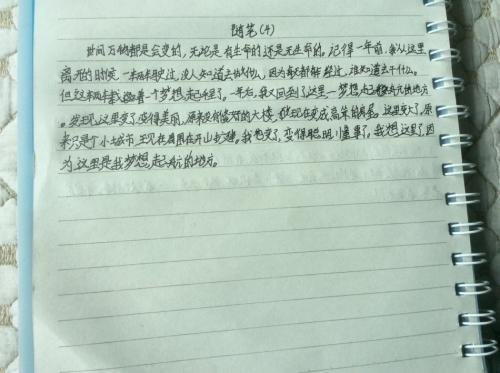 随笔(4)
世间万物都是会变的，无论是有生命的还是无生命的。记得一年前，我从这里
离开的时候，一辆车驶过，没人知道去做什么，因为每天都有车经过，谁知道去干什么。
但这辆车载着一个梦想，起程了。一年后，我又回到了这里—梦想起航的地方
。我发现这里变了，变得美丽，原来没有像样的大楼，但现在变成高的。这里变大了，原
来只是个小城市，现在周围在开山扩建。我也变了，变得聪明，懂事了。我想这里了，因
为这里是我梦想起航的地方。